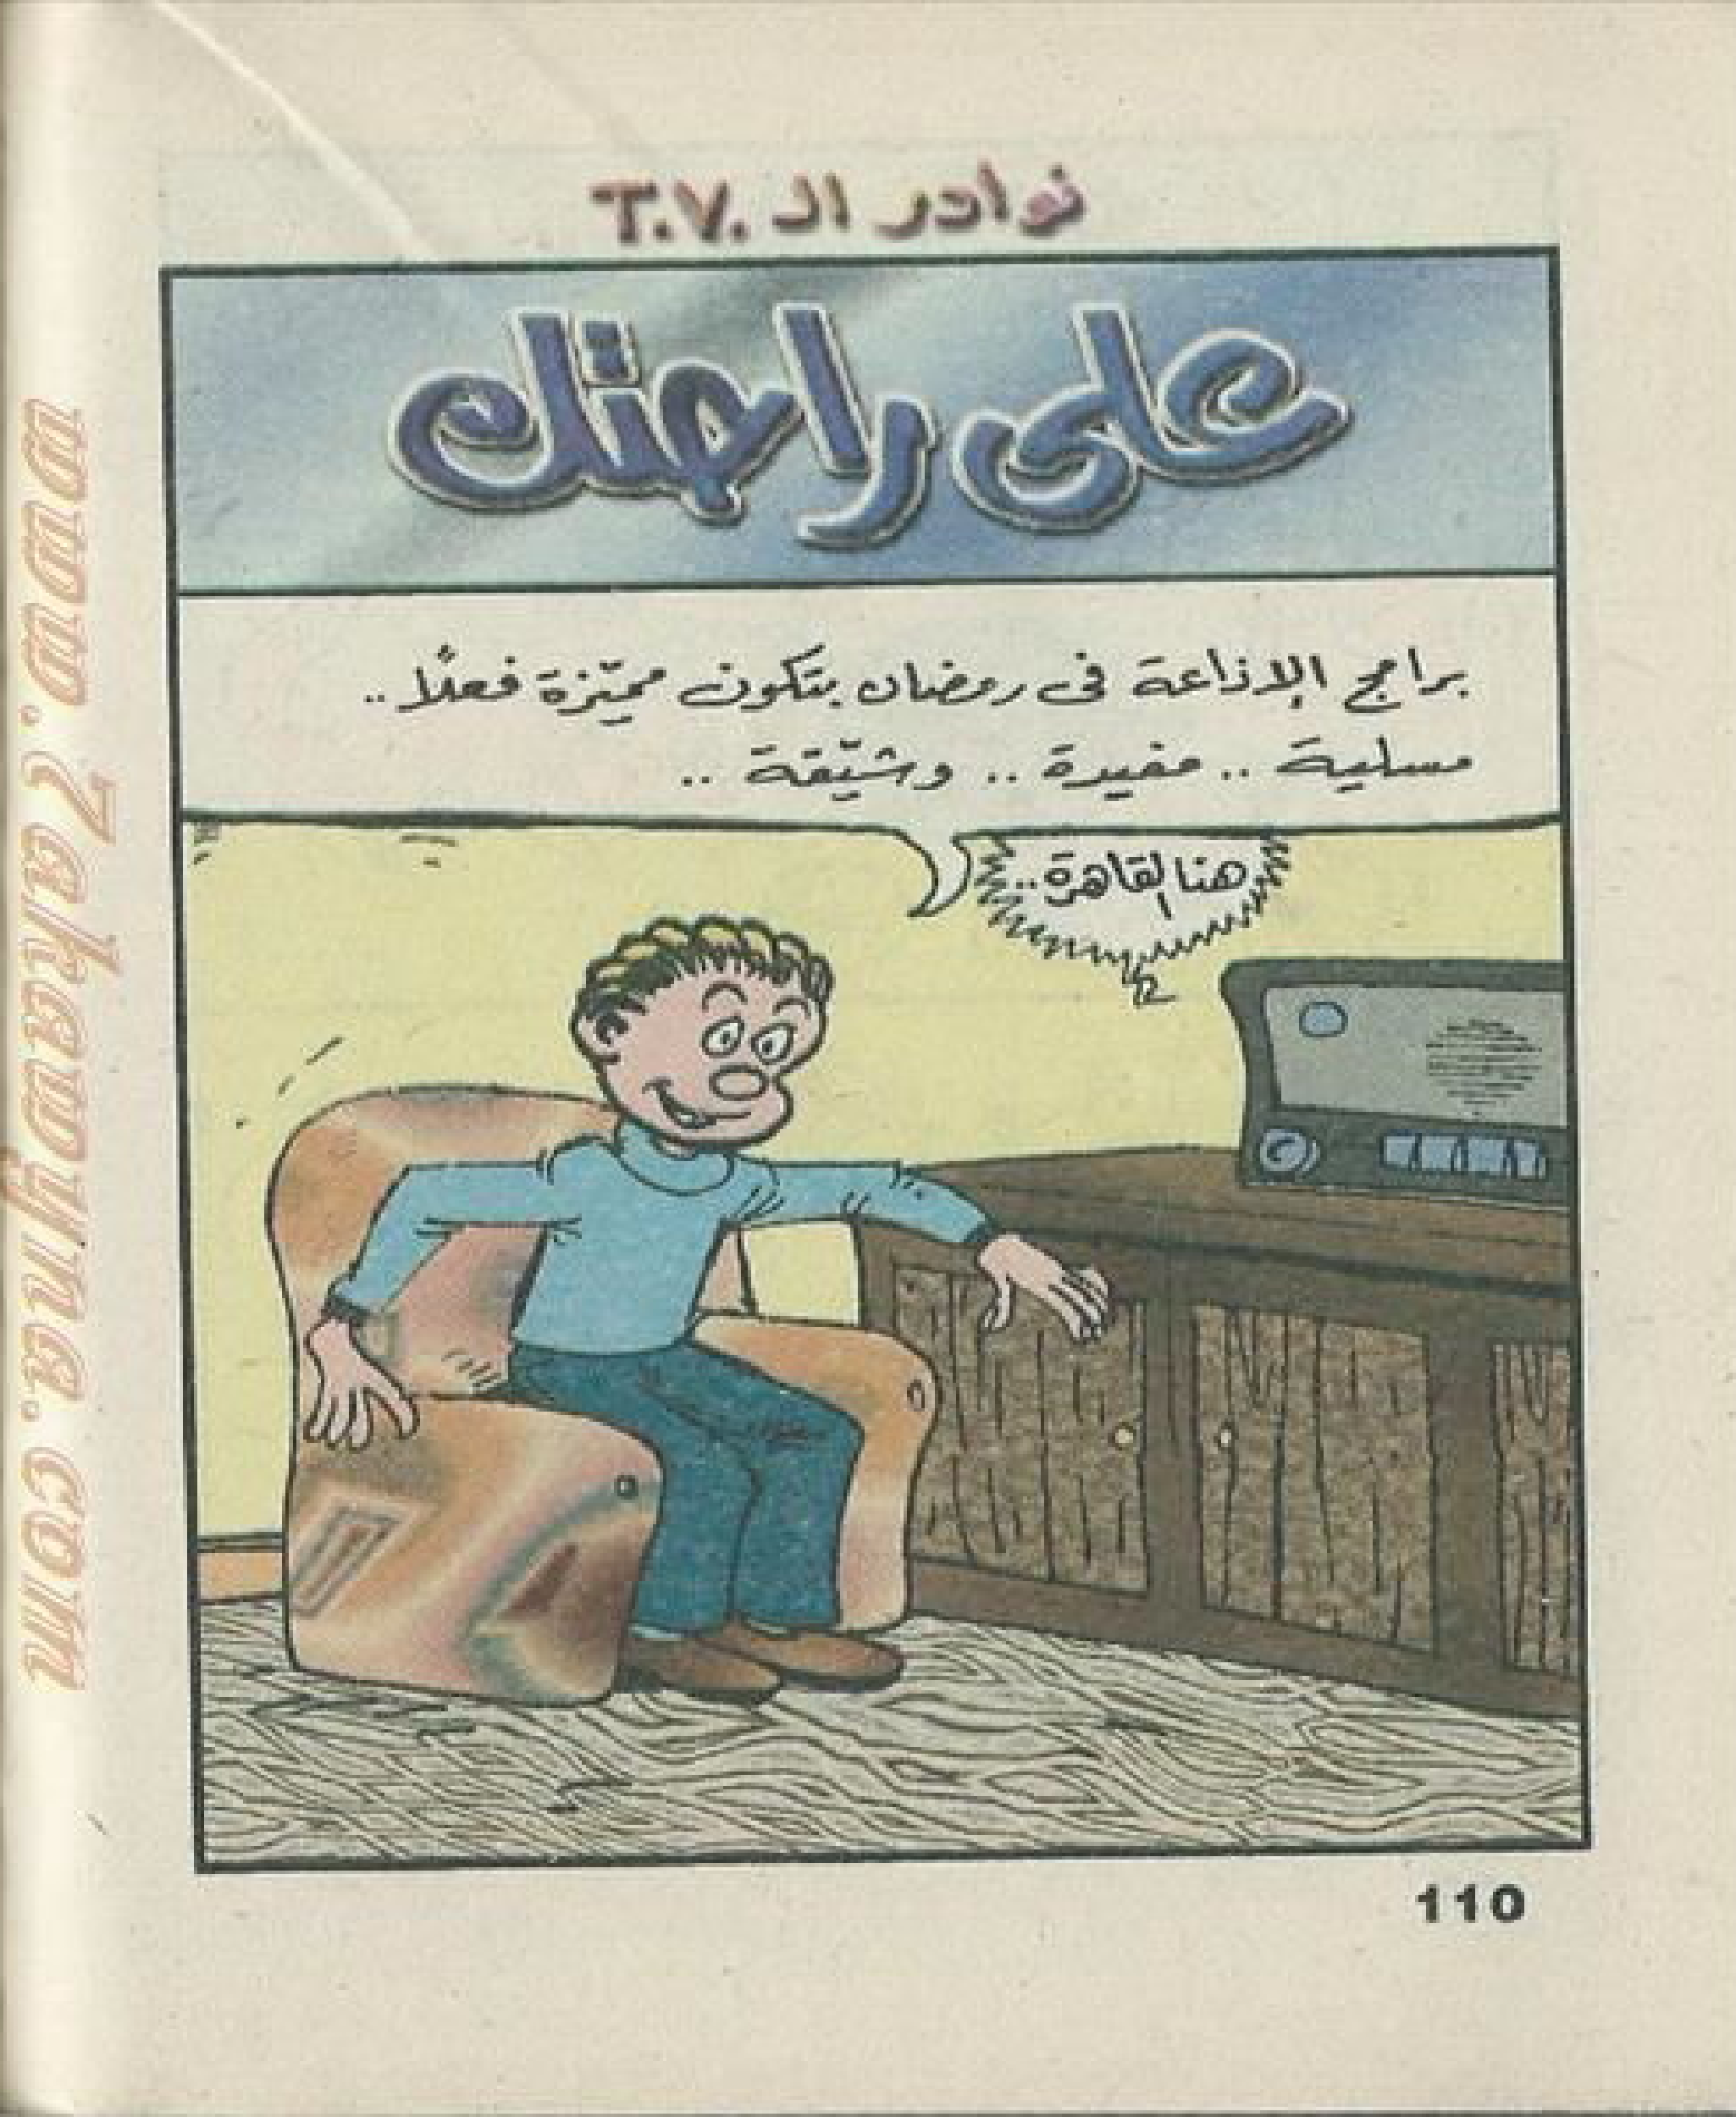 نوادر الـ T.V.
على راحتك
برامج الإذاعة فى رمضان بتكون مميّزة فعلاً ..
مسلية .. مفيدة .. وشيّقة ..
هنا القاهرة ..
110
www.Zakawyna.com